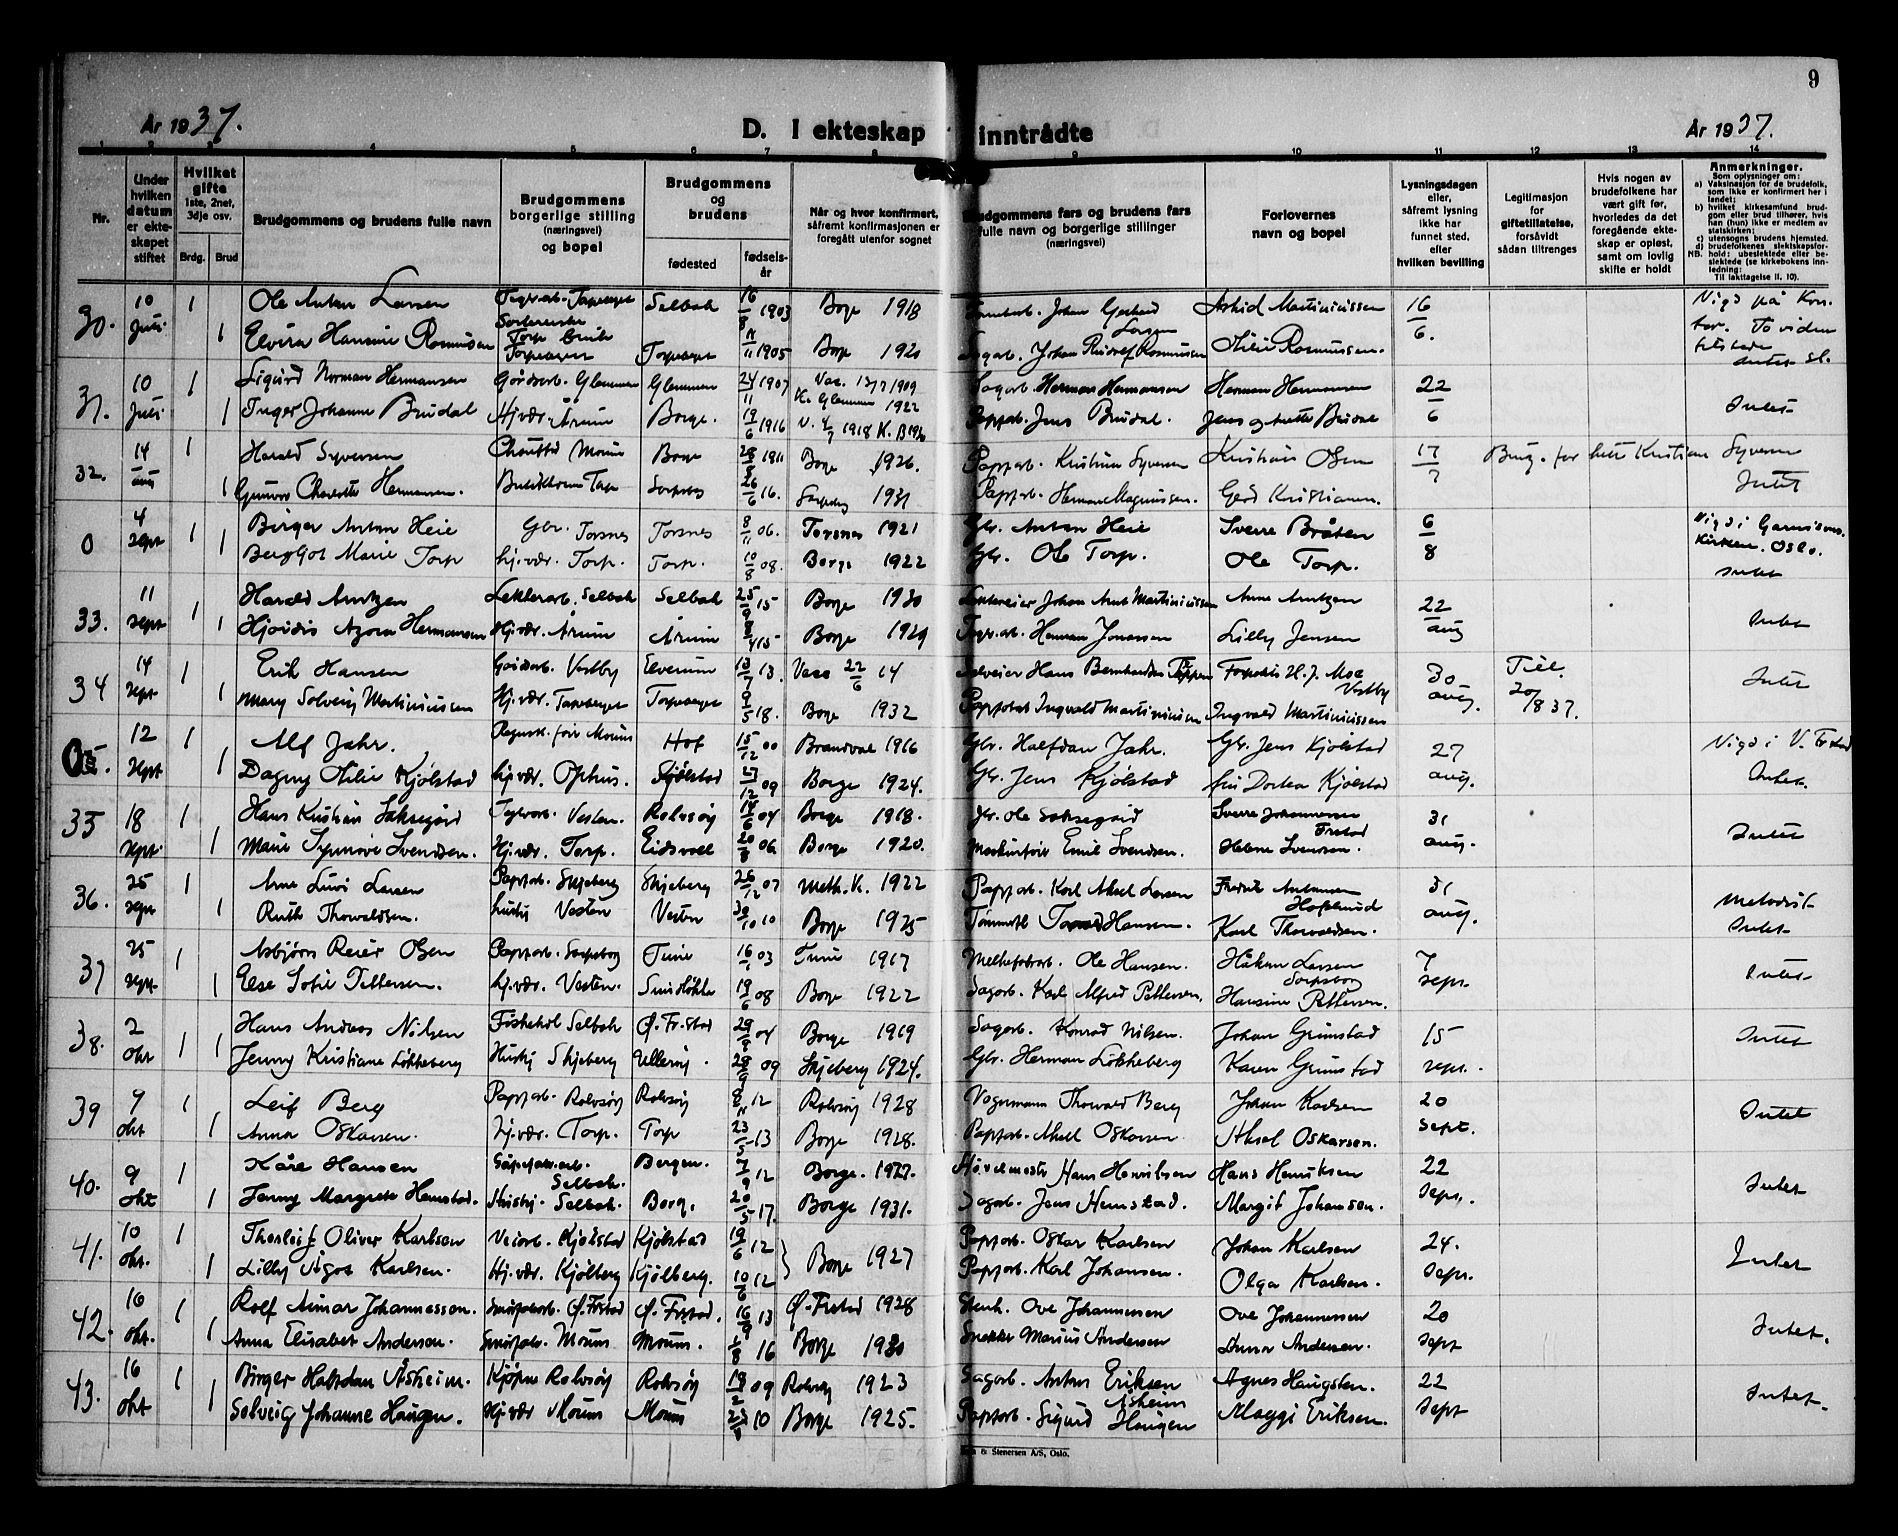 9
År 1937.
D. I ekteskap inntrådte
År 1937.
1 2 3 4 5 6 7 8 9 10 11 12 13 14
Nr.
Under hvilken datum er ekteskapet stiftet
Hvilket gifte 1ste, 2net, 3dje osv.
Brdg. Brud
Brudgommens og brudens fulle navn
Brudgommens borgerlige stilling (næringsvei) og bopel
Brudgommens og brudens
fødested fødselsår
Når og hvor konfirmert, såfremt konfirmasjonen er foregått utenfor sognet
Brudgommens fars og brudens fars fulle navn og borgerlige stillinger (næringsvei)
Forlovernes navn og bopel
Lysningsdagen eller, såfremt lysning ikke har funnet sted, efter hvilken bevilling
Legitimasjon for giftetillatelse, forsåvidt sådan tiltrenges
Hvis nogen av brudefolkene har vært gift før, hvorledes da det foregående ekteskap er opløst, samt om lovlig skifte er holdt
Anmerkninger.
Som oplysninger om:
a) Vaksinasjon for de brudefolk, som ikke er konfirmert her i landet;
b) hvilket kirkesamfund brudgom eller brud tilhører, hvis han (hun) ikke er medlem av statskirken;
c) utensogns brudens hjemsted.
d) brudefolkenes slektskapsforhold: ubeslektede eller beslektede (se kirkebokens innledning:
NB. Til iakttagelse II, 10).
30. 10 juli 1 Ole Anton Larsen Selbak 16/8 1903 Borge 1918 Johan Gerhard Larsen Astrid Martiniussen 16/6.
1 Elvira Hansine Rasmussen Torpeberget 11/11 1905 Borge 1920 Sagarb. Johan Rudolf Rasmussen Rasmussen.
31. 10 juli 1 Sigurd Norman Hermansen Glemmen Glemmen 24/11 1907 K. Glemmen 1922 Sagarb. Herman Hermansen Herman Hermansen 22/6
1 Inger Johanne Brudal Hj.vær. Årum Borge. 19/6 1916 Papparb. Jens Brudal. Jens og Brudal Intet
32. 14 aug 1 Harald Syversen Moum Borge 28/8 1911 Borge 1926. Papparb. Kristian Syversen Kristian Olsen 17/7 Kristian Syversen
1 Gunvor Charlotte Hermansen. Torp Sarpsborg 26/6 16. Sarpsborg 1931 Papparb. Herman Magnussen. Gerd Kristiansen. Intet
0 4 sept 1 Birger Anton Heie Gbr. Torsnes Torsnes 8/11 06. Torsnes 1921 Gbr. Anton Heie Sverre Bråten 6/8 Vigd i Garnisonskirken. Oslo.
1 Bergljot Marie Torp hj.vær. Torp. Torp. 10/8 08. Borge 1922 Gbr. Ole Torp. Ole Torp. Intet
33. 11 sept 1 Harald Arntzen Lekterarb. Selbak Selbak 25/9 15 Borge 1930 Johan Arnt Martiniussen Arne Arntzen 22 aug
1 Hjørdis Azora Hermansen Hj.vær. Årum Årum 4 15 Borge 1929 Herman Jonassen Lilly Jensen Intet
34 14 sept 1 Erik Hansen Vestby Elverum 13/7 13. Vacc 22/6 14 Hans Bernhardsen H. J. Moe Vestby 30 aug. Till. 20/8 37.
1 Mary Solveig Martiniussen Hj.vær. Torpeberget Torpeberget 9/5 18. Borge 1932 Papparb. Ingvald Martiniussen Ingvald Martiniussen Intet
12 sept 1 Alf Jahr. Moum Hof 15/12 00 Brandval 1916 Gbr. Halfdan Jahr. Gbr. Jens Kjølstad 27 aug. Vigd i V. Frstad
1 Dagny Kjølstad hj.vær. Ophus. Kjølstad 27/12 09 Borge 1924. Gbr. Jens Kjølstad fru Dortea Kjølstad Intet.
35 18 sept 1 Hans Kristian Saksegård Teglvarb. Vesten. Rolvsøy 14/6 04 Borge 1918. Gbr. Ole Saksegård Sverre Johannessen Frstad 31 aug.
1 Marie Synnøve Svendsen. Hj.vær. Torp. Eidsvoll 20/8 06 Borge 1920. Emil Svendsen. Helene Svensen. Intet
36. 25 sept 1 Arne Levi Larsen Papparb. Skjeberg Skjeberg 26/12 07 Meth.K. 1922 Papparb. Karl Aksel Larsen Fredrik Antonsen Hafslund 31 aug. Metodist
1 Ruth Thorvaldsen. hushj Vesten Vesten 30/10 10 Borge 1925 Hansen. Karl Thorvaldsen. Intet
37 25 sept 1 Asbjørn Reier Olsen Papparb. Sarpsborg Tune 16 03 Tune 1917 Ole Hansen. Håkon Larsen Sarpsborg 7 sept.
1 Else Sofie Pettersen. hj.vær. Vesten. 19/6 08 Borge 1922 Sagarb. Karl Alfred Pettersen. Hansine Pettersen. Intet
38. 2 okt 1 Hans Andreas Nilsen Selbak Ø. Fr.stad 29/9 04 Borge 1919 Sagarb. Konrad Nilsen. Johan Grimstad 15 sept.
1 Jenny Kristiane Løkkeberg Hushj Skjeberg Ullerøy. 09 Skjeberg 1924. Gbr. Herman Løkkeberg Karen Grimstad Intet
39 9 okt 1 Leif Berg Papparb. Rolvsøy Rolvsøy 8/11 12 Rolvsøy 1928 Vognmann Thorvald Berg Johan Karlsen 20 sept.
1 Anna Oskarsen. hj.vær. Torp. Torp 23/5 13 Borge 1928. Papparb. Aksel Oskarsen Aksel Oskarsen. Intet
40. 9 okt 1 Kåre Hansen Selbak. Bergen. 7/9 12 Borge. 1927. Høvelmester Hans Henriksen Hans Henriksen 22 sept.
1 Jenny Margrete Hemstad. Hushj. Selbak. Borge. 20/5 17. Borge 1931. Sagarb. Jens Hemstad. Margit Johansen. Intet
41. 10 okt. 1 Thorleif Oliver Karlsen Veiarb. Kjølstad Kjølstad 19/6 12 Borge 1927 Papparb. Oskar Karlsen Johan Karlsen 24. sept.
1 Lilly Ågot Karlsen. Hj.vær. Kjølberg Kjølberg. 10/6 12 Papparb. Karl Johansen. Olga Karlsen. Intet
42. 16 okt. 1 Rolf Aimar Johannessen. Ø. Frstad Ø. Frstad. 16/9 13 Ø. Frstad 1928 Ove Johannessen Ove Johannessen 20 sept
1 Anna Elisabet Andersen. Moum Moum. 8 16 Borge 1930 Snekker Marius Andersen Anna Andersen. Intet.
43. 16 okt 1 Birger Halfdan Åsheim. Kjøpm Rolvsøy Rolvsøy 18/2 09 Rolvsøy 1923 Sagarb. Anton Eriksen Åsheim Agnes Haugsten. 22 sept
1 Solveig Johanne Haugen. Hj.vær Moum Moum 10 Borge 1925. Papparb. Sigurd Haugen Maggi Eriksen. Intet.
& Stenersen A/S, Oslo.